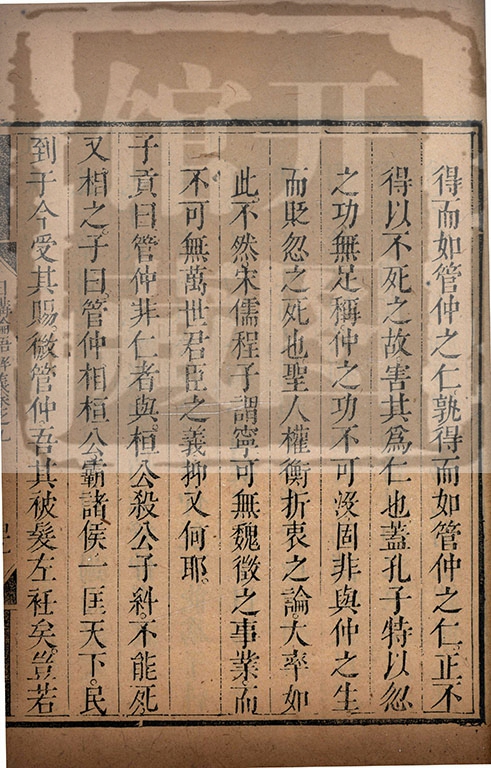 得而如管仲之仁孰得而如管仲之仁正不
得以不死之故害其爲仁也蓋孔子特以忽
之功無足稱仲之功不可沒固非與仲之生
而貶忽之死也聖人權衡折衷之論大率如
此不然宋儒程子謂寧可無魏徵之事業而
不可無萬世君臣之義抑又何耶
子貢曰管仲非仁者與桓公殺公子糾不能死
又相之子曰管仲相桓公霸諸侯一匡天下民
到于今受其賜微管仲吾其被髮左衽矣豈若